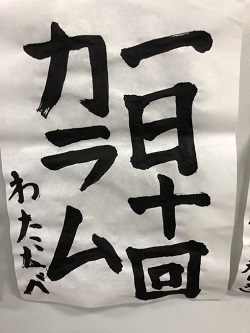 一日十回
カラム
わたなべ